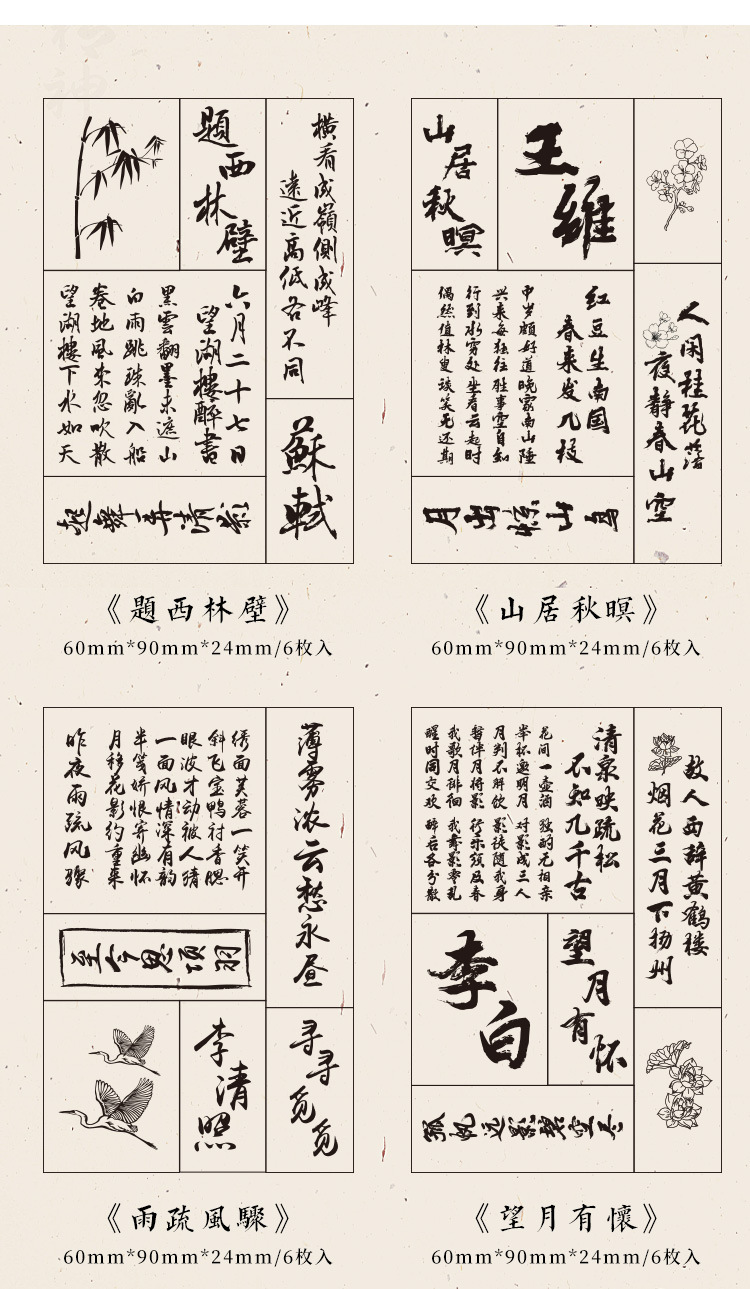 橫看成嶺側成峰
遠近高低各不同
題西林壁
六月二十七日
望湖樓醉書
黑雲翻墨未遮山
白雨跳珠亂入船
卷地風來忽吹散
望湖樓下水如天
蘇軾
起舞弄清影
《題西林壁》
60mm*90mm*24mm/6枚入
王維
山居秋暝
人闲桂花落
夜静春山空
红豆生南国
春来发几枝
中岁颇好道晚家南山陲
兴来每独往胜事空自知
行到水穷处坐看云起时
偶然值林叟谈笑无还期
月出惊山鸟
《山居秋暝》
60mm*90mm*24mm/6枚入
薄雾浓云愁永昼
绣面芙蓉一笑开
斜飞宝鸭衬香腮
眼波才动被人猜
一面风情深有韵
半笺娇恨寄幽怀
月移花影约重来
昨夜雨疏风骤
至今思项羽
寻寻觅觅
李清照
《雨疏風驟》
60mm*90mm*24mm/6枚入
故人西辞黄鹤楼
烟花三月下扬州
清泉映疏松
不知几千古
花间一壶酒 独酌无相亲
举杯邀明月 对影成三人
月既不解饮 影徒随我身
暂伴月将影 行乐须及春
我歌月徘徊 我舞影零乱
醒时同交欢 醉后各分散
望月有怀
李白
孤帆远影碧空尽
《望月有懷》
60mm*90mm*24mm/6枚入